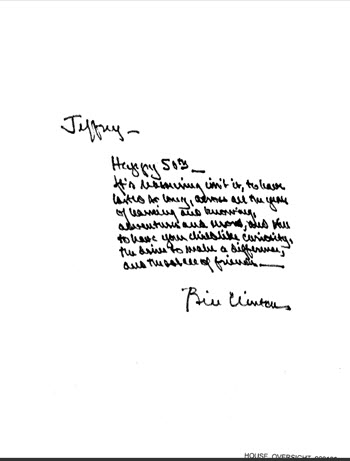 Jeffrey—
Happy 50th—
It's reassuring isn't it, to have
lasted as long, across all the years
of learning and knowing,
adventures and , and also
to have your childlike curiosity,
the drive to make a difference,
and the solace of friends.—
Bill Clinton
HOUSE_OVERSIGHT